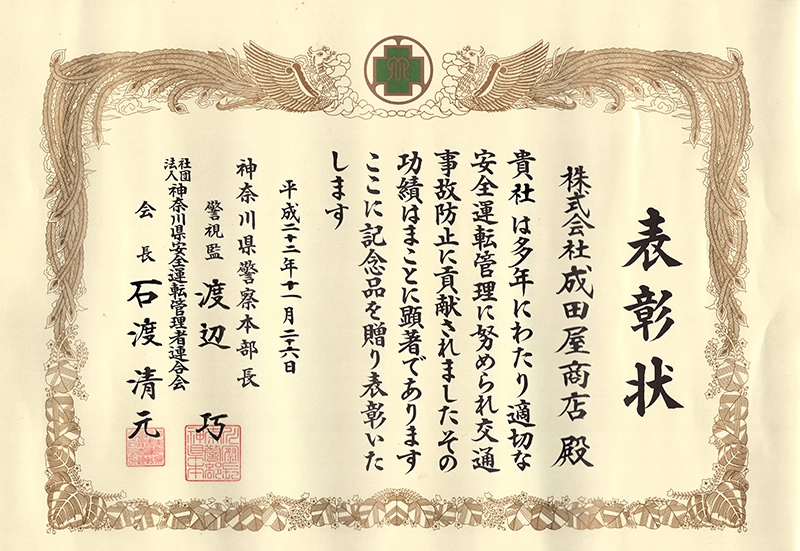 表彰状
株式会社成田屋商店 殿
貴社 は多年にわたり適切な
安全運転管理に努められ交通
事故防止に貢献されましたその
功績はまことに顕著であります
ここに記念品を贈り表彰いた
します
平成二十二年十一月二十六日
神奈川県警察本部長
警視監 渡辺 巧
社団法人神奈川県安全運転管理者連合会
会長 石渡清元